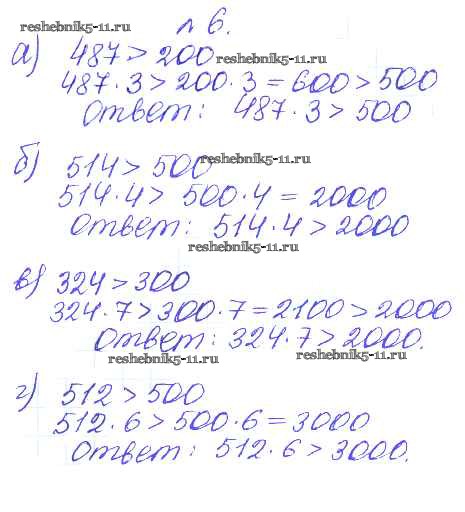 reshebnik5-11.ru № 6.
а) 487 > 200 reshebnik5-11.ru
487 · 3 > 200 · 3 = 600 > 500
Ответ: 487 · 3 > 500
б) 514 > 500 reshebnik5-11.ru
514 · 4 > 500 · 4 = 2000
Ответ: 514 · 4 > 2000
reshebnik5-11.ru
в) 324 > 300
324 · 7 > 300 · 7 = 2100 > 2000
Ответ: 324 · 7 > 2000.
reshebnik5-11.ru reshebnik5-11.ru
г) 512 > 500
512 · 6 > 500 · 6 = 3000
Ответ: 512 · 6 > 3000.